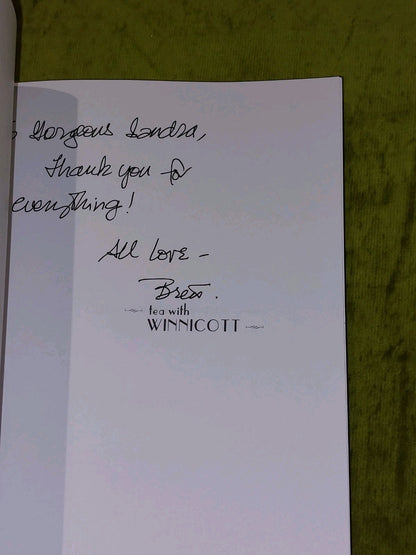 Gorgeous Sandra,
Thank you for
everything!
All Love –
Brett.
tea with
WINNICOTT